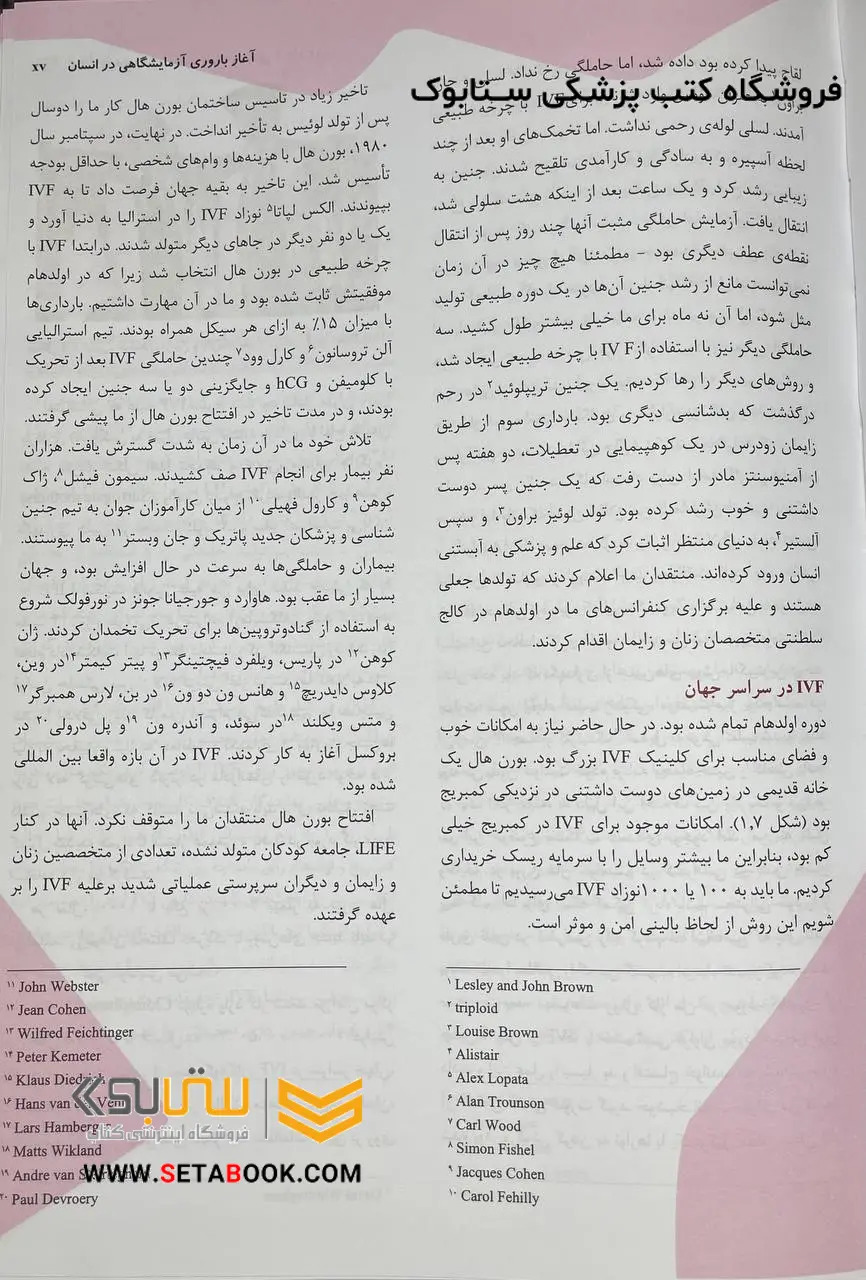 آغاز باروری آزمایشگاهی در انسان XV
فروشگاه کتب پزشکی ستابوک
لقاح پیدا کرده بود داده شد، اما حاملگی رخ نداد. لسلی و جان
براون با چرخه طبیعی
آمدند. لسلی لوله‌ی رحمی نداشت. اما تخمک‌های او بعد از چند
لحظه آسپیره و به سادگی و کارآمدی تلقیح شدند. جنین به
زیبایی رشد کرد و یک ساعت بعد از اینکه هشت سلولی شد،
انتقال یافت. آزمایش حاملگی مثبت آنها چند روز پس از انتقال
نقطه‌ی عطف دیگری بود – مطمئنا هیچ چیز در آن زمان
نمی‌توانست مانع از رشد جنین آن‌ها در یک دوره طبیعی تولید
مثل شود، اما آن نه ماه برای ما خیلی بیشتر طول کشید. سه
حاملگی دیگر نیز با استفاده از IV F با چرخه طبیعی ایجاد شد،
و روش‌های دیگر را رها کردیم. یک جنین تریپلوئید۲ در رحم
درگذشت که بدشانسی دیگری بود. بارداری سوم از طریق
زایمان زودرس در یک کوهپیمایی در تعطیلات، دو هفته پس
از آمنیوسنتز مادر از دست رفت که یک جنین پسر دوست
داشتنی و خوب رشد کرده بود. تولد لوئیز براون۳، و سپس
آلستیر۴، به دنیای منتظر اثبات کرد که علم و پزشکی به آبستنی
انسان ورود کرده‌اند. منتقدان ما اعلام کردند که تولدها جعلی
هستند و علیه برگزاری کنفرانس‌های ما در اولدهام در کالج
سلطنتی متخصصان زنان و زایمان اقدام کردند.
IVF در سراسر جهان
دوره اولدهام تمام شده بود. در حال حاضر نیاز به امکانات خوب
و فضای مناسب برای کلینیک IVF بزرگ بود. بورن هال یک
خانه قدیمی در زمین‌های دوست داشتنی در نزدیکی کمبریج
بود (شکل ۱,۷). امکانات موجود برای IVF در کمبریج خیلی
کم بود، بنابراین ما بیشتر وسایل را با سرمایه ریسک خریداری
کردیم. ما باید به ۱۰۰ یا ۱۰۰۰نوزاد IVF می‌رسیدیم تا مطمئن
شویم این روش از لحاظ بالینی امن و موثر است.
۱ Lesley and John Brown
۲ triploid
۳ Louise Brown
۴ Alistair
۵ Alex Lopata
۶ Alan Trounson
۷ Carl Wood
۸ Simon Fishel
۹ Jacques Cohen
۱۰ Carol Fehilly
تاخیر زیاد در تاسیس ساختمان بورن هال کار ما را دوسال
پس از تولد لوئیس به تأخیر انداخت. در نهایت، در سپتامبر سال
۱۹۸۰، بورن هال با هزینه‌ها و وام‌های شخصی، با حداقل بودجه
تأسیس شد. این تاخیر به بقیه جهان فرصت داد تا به IVF
بپیوندند. الکس لپاتا۵ نوزاد IVF را در استرالیا به دنیا آورد و
یک یا دو نفر دیگر در جاهای دیگر متولد شدند. درابتدا IVF با
چرخه طبیعی در بورن هال انتخاب شد زیرا که در اولدهام
موفقیتش ثابت شده بود و ما در آن مهارت داشتیم. بارداری‌ها
با میزان ۱۵٪ به ازای هر سیکل همراه بودند. تیم استرالیایی
آلن تروسانون۶ و کارل وود۷ چندین حاملگی IVF بعد از تحریک
با کلومیفن و hCG و جایگزینی دو یا سه جنین ایجاد کرده
بودند، و در مدت تاخیر در افتتاح بورن هال از ما پیشی گرفتند.
تلاش خود ما در آن زمان به شدت گسترش یافت. هزاران
نفر بیمار برای انجام IVF صف کشیدند. سیمون فیشل۸، ژاک
کوهن۹ و کارول فهیلی۱۰ از میان کارآموزان جوان به تیم جنین
شناسی و پزشکان جدید پاتریک و جان وبستر۱۱ به ما پیوستند.
بیماران و حاملگی‌ها به سرعت در حال افزایش بود، و جهان
بسیار از ما عقب بود. هاوارد و جورجیانا جونز در نورفولک شروع
به استفاده از گنادوتروپین‌ها برای تحریک تخمدان کردند. ژان
کوهن۱۲ در پاریس، ویلفرد فیچتینگر۱۳و پیتر کیمتر۱۴در وین،
کلاوس دایدریچ۱۵ و هانس ون دو ون۱۶ در بن، لارس همبرگر۱۷
و متس ویکلند ۱۸در سوئد، و آندره ون ۱۹و پل درولی۲۰ در
بروکسل آغاز به کار کردند. IVF در آن بازه واقعا بین المللی
شده بود.
افتتاح بورن هال منتقدان ما را متوقف نکرد. آنها در کنار
LIFE، جامعه کودکان متولد نشده، تعدادی از متخصصین زنان
و زایمان و دیگران سرپرستی عملیاتی شدید برعلیه IVF را بر
عهده گرفتند.
۱۱ John Webster
۱۲ Jean Cohen
۱۳ Wilfred Feichtinger
۱۴ Peter Kemeter
۱۵ Klaus Diedrich
۱۶ Hans van der Venn
۱۷ Lars Hamberger
۱۸ Matts Wikland
۱۹ Andre van
۲۰ Paul Devroery
ستابوک
فروشگاه اینترنتی کتاب
WWW.SETABOOK.COM